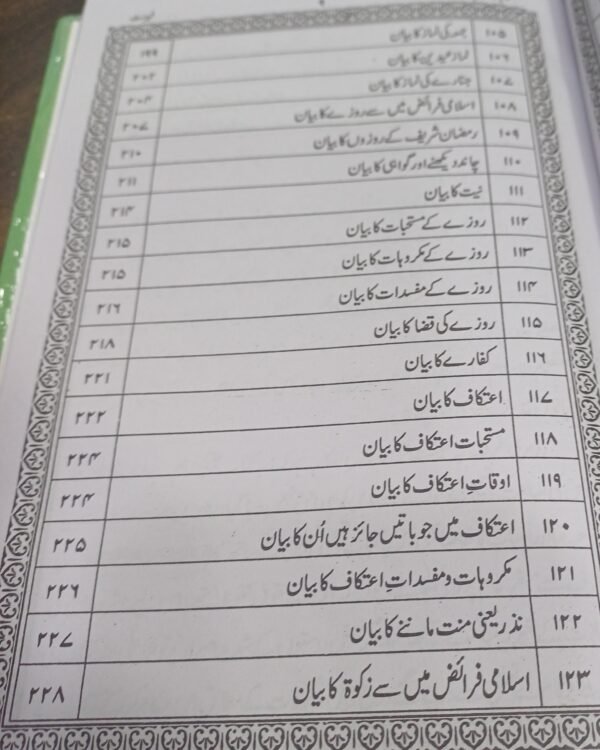 فہرست
۱۰۵ جمعہ کی نماز کا بیان ۱۹۹
۱۰۶ نماز عیدین کا بیان ۲۰۲
۱۰۷ جنازے کی نماز کا بیان ۲۰۴
۱۰۸ اسلامی فرائض میں سے روزے کا بیان ۲۰۷
۱۰۹ رمضان شریف کے روزوں کا بیان ۲۱۰
۱۱۰ چاند دیکھنے اور گواہی کا بیان ۲۱۱
۱۱۱ نیت کا بیان ۲۱۴
۱۱۲ روزے کے مستحبات کا بیان ۲۱۵
۱۱۳ روزے کے مکروہات کا بیان ۲۱۵
۱۱۴ روزے کے مفسدات کا بیان ۲۱۶
۱۱۵ روزے کی قضا کا بیان ۲۱۸
۱۱۶ کفارے کا بیان ۲۲۱
۱۱۷ اعتکاف کا بیان ۲۲۲
۱۱۸ مستحبات اعتکاف کا بیان ۲۲۴
۱۱۹ اوقاتِ اعتکاف کا بیان ۲۲۴
۱۲۰ اعتکاف میں جو باتیں جائز ہیں اُن کا بیان ۲۲۵
۱۲۱ مکروہات و مفسداتِ اعتکاف کا بیان ۲۲۶
۱۲۲ نذر یعنی منت ماننے کا بیان ۲۲۷
۱۲۳ اسلامی فرائض میں سے زکوٰۃ کا بیان ۲۲۸